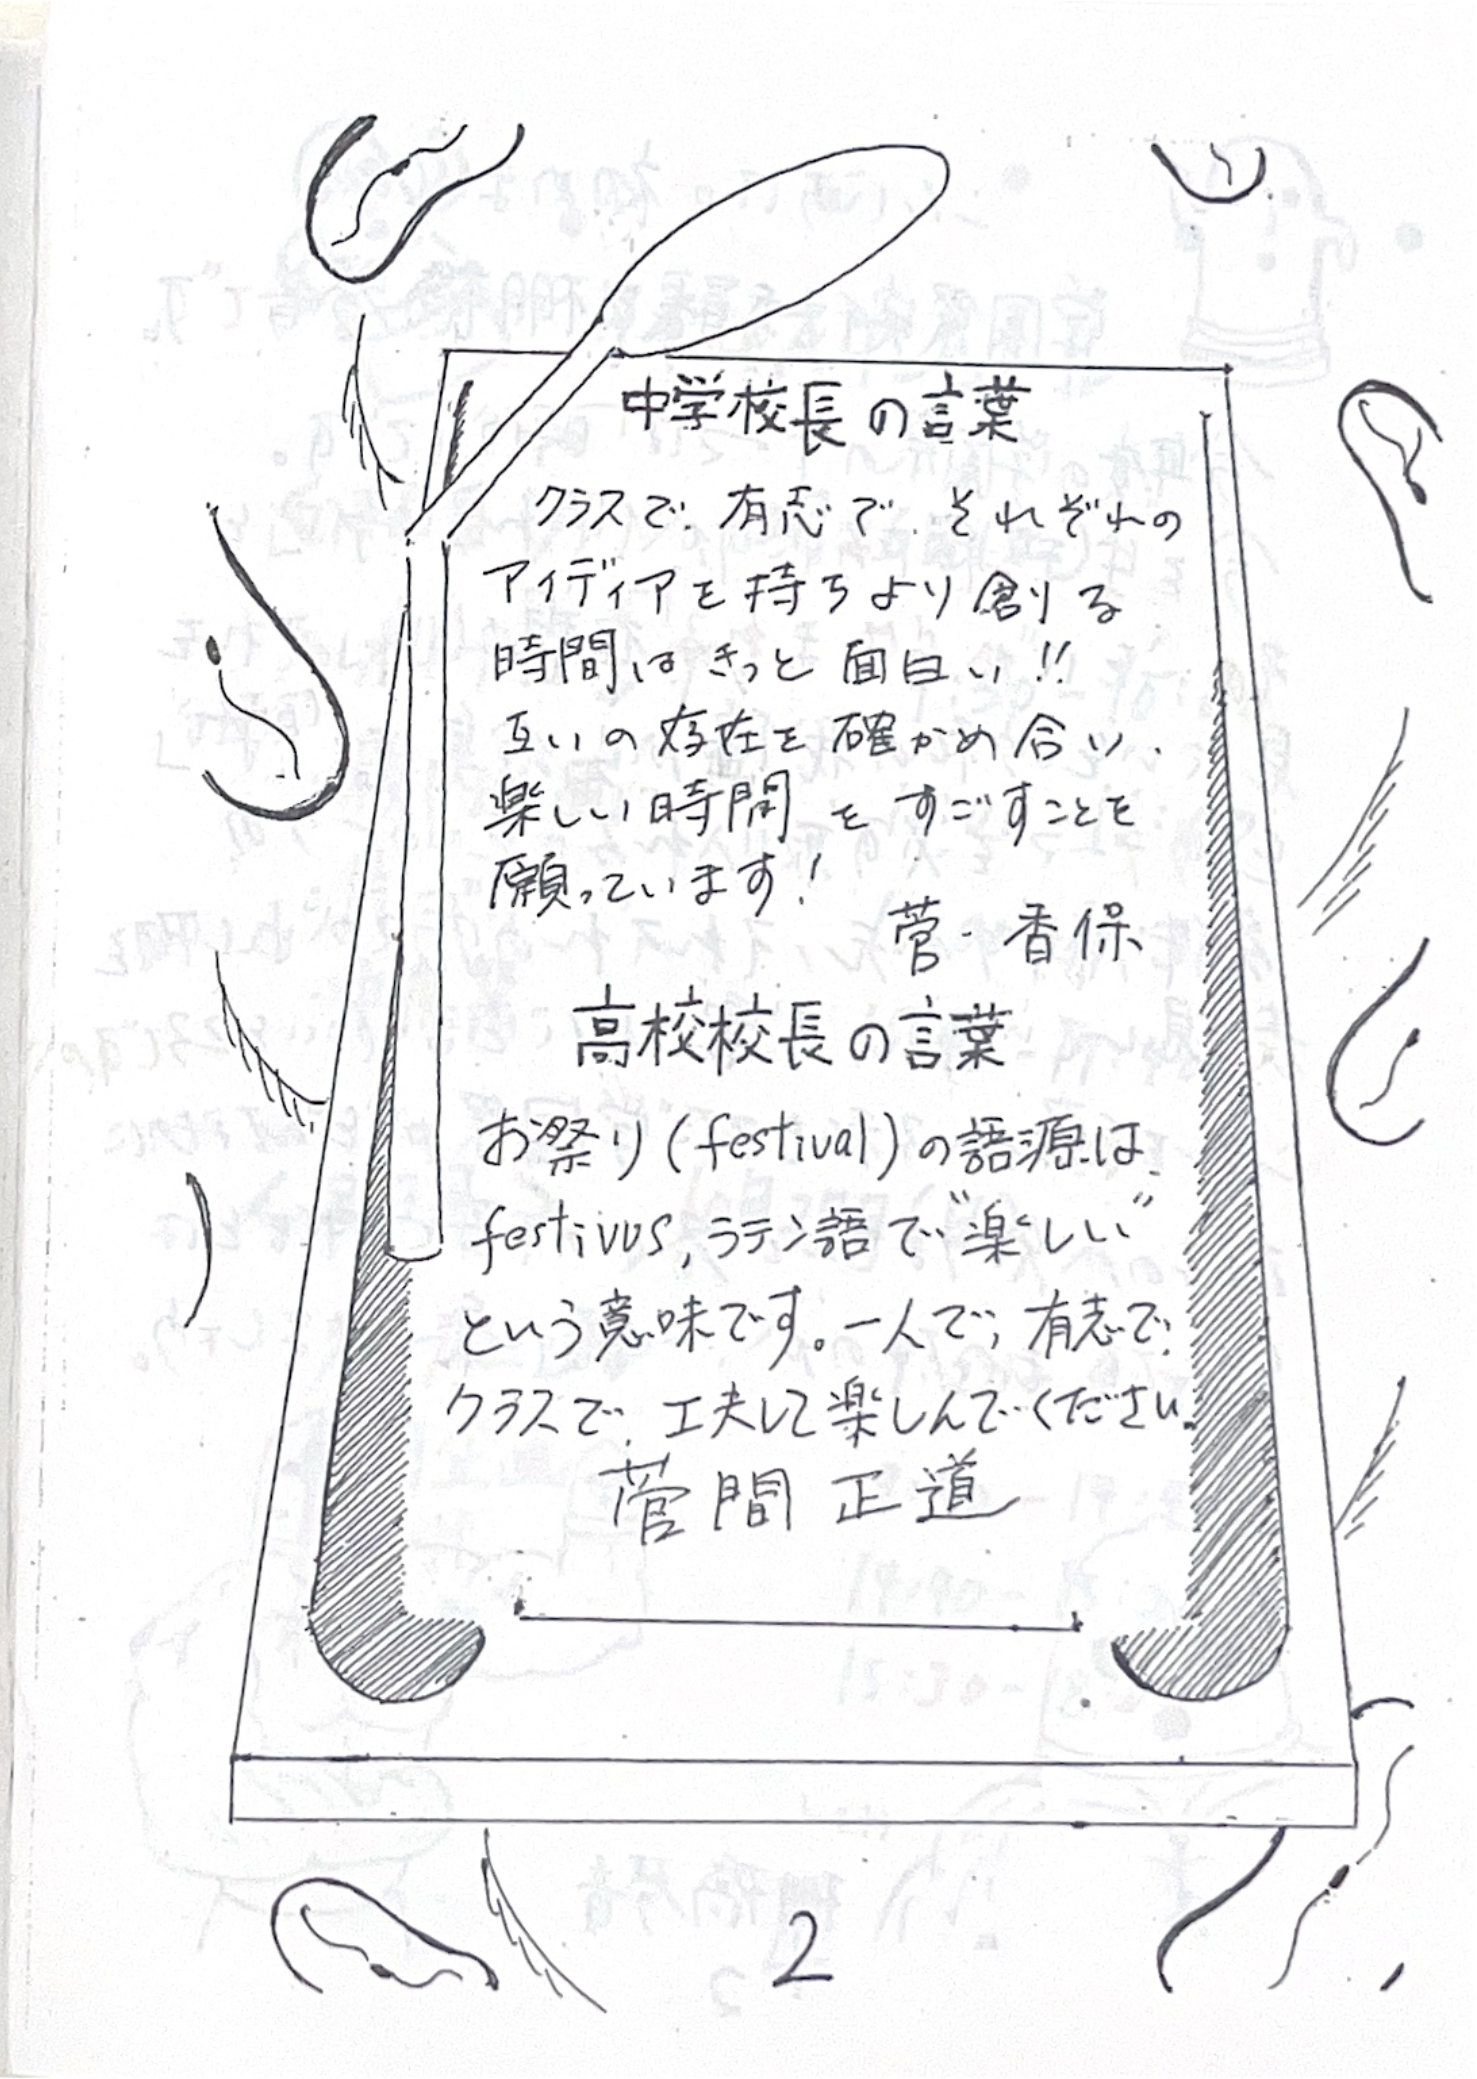 中学校長の言葉
クラスで、有志で、それぞれの
アイディアを持ちより創る
時間はきっと面白い!!
互いの存在を確かめ合い、
楽しい時間をすごすことを
願っています!
菅・香保
高校校長の言葉
お祭り(festival)の語源は、
festivus, ラテン語で“楽しい”
という意味です。一人で、有志で、
クラスで、工夫して楽しんでください。
菅間 正道
2